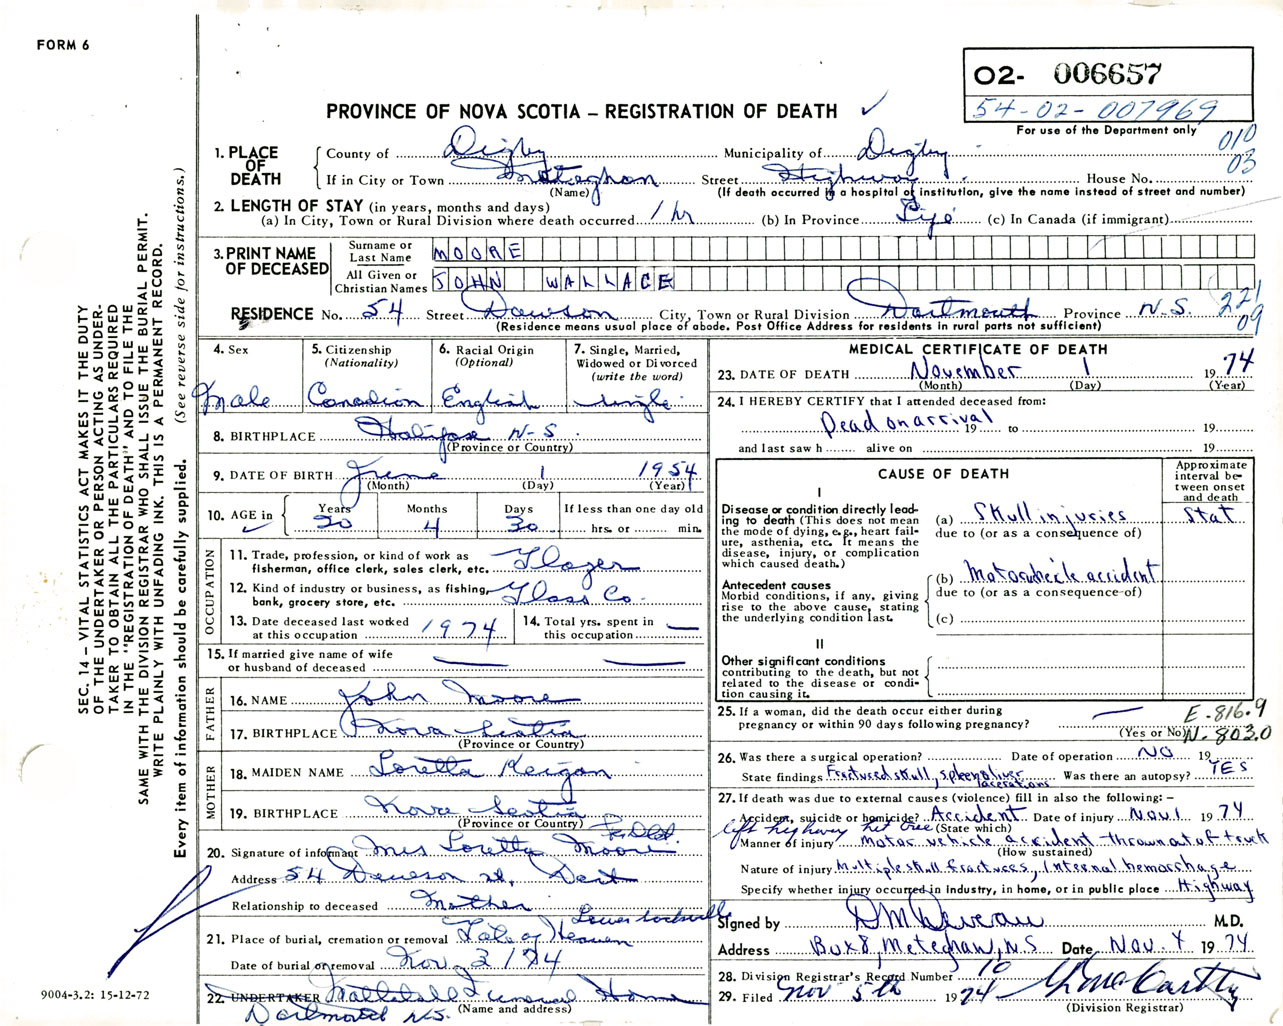 FORM 6
O2- 006657
54-02-007969
For use of the Department only
010
03
PROVINCE OF NOVA SCOTIA – REGISTRATION OF DEATH ✓
1. PLACE OF DEATH
County of Digby Municipality of Digby
If in City or Town Meteghan Street Highway House No.
(Name) (If death occurred in a hospital or institution, give the name instead of street and number)
2. LENGTH OF STAY (in years, months and days)
(a) In City, Town or Rural Division where death occurred 1 hr (b) In Province Life (c) In Canada (if immigrant)
3. PRINT NAME OF DECEASED
Surname or Last Name MOORE
All Given or Christian Names JOHN WALLACE
RESIDENCE No. 54 Street Dawson City, Town or Rural Division Dartmouth Province N.S.
221
09
(Residence means usual place of abode. Post Office Address for residents in rural parts not sufficient)
4. Sex
Male
5. Citizenship
(Nationality)
Canadian
6. Racial Origin
(Optional)
English
7. Single, Married,
Widowed or Divorced
(write the word)
single
8. BIRTHPLACE Halifax N-S.
(Province or Country)
9. DATE OF BIRTH June 1 1954
(Month) (Day) (Year)
10. AGE in ✓
Years 20
Months 4
Days 30
If less than one day old
hrs. or min.
OCCUPATION
11. Trade, profession, or kind of work as
fisherman, office clerk, sales clerk, etc. Glazer
12. Kind of industry or business, as fishing,
bank, grocery store, etc. Glass Co.
13. Date deceased last worked
at this occupation 1974
14. Total yrs. spent in
this occupation —
15. If married give name of wife
or husband of deceased — —
FATHER
16. NAME John Moore
17. BIRTHPLACE Nova Scotia
(Province or Country)
MOTHER
18. MAIDEN NAME Loretta Keigan
19. BIRTHPLACE Nova Scotia
(Province or Country)
20. Signature of informant Mrs Loretta Moore
Address 54 Dawson st, Dart
Relationship to deceased Mother
Lower Sackville
21. Place of burial, cremation or removal Gate of Heaven
Date of burial or removal Nov 3/74
22. UNDERTAKER Funeral Home
(Name and address)
Dartmouth N.S.
MEDICAL CERTIFICATE OF DEATH
23. DATE OF DEATH November 1 1974
(Month) (Day) (Year)
24. I HEREBY CERTIFY that I attended deceased from:
Dead on arrival 19 to 19
and last saw h alive on 19
CAUSE OF DEATH
Approximate
interval be-
tween onset
and death
I
Disease or condition directly lead-
ing to death (This does not mean
the mode of dying, e.g., heart fail-
ure, asthenia, etc. It means the
disease, injury, or complication
which caused death.)
(a) Skull injuries Stat
due to (or as a consequence of)
Antecedent causes
Morbid conditions, if any, giving
rise to the above cause, stating
the underlying condition last.
(b) Motor vehicle accident
due to (or as a consequence of)
(c)
II
Other significant conditions
contributing to the death, but not
related to the disease or condi-
tion causing it.
25. If a woman, did the death occur either during
pregnancy or within 90 days following pregnancy? —
(Yes or No)
E-816.9
N-803.0
26. Was there a surgical operation? Date of operation NO 19
State findings Fractured skull, spleen & liver lacerations Was there an autopsy? YES
27. If death was due to external causes (violence) fill in also the following: –
Accident, suicide or homicide? Accident Date of injury Nov 1 1974
(State which)
left highway hit tree
Manner of injury motor vehicle accident thrown out of truck
(How sustained)
Nature of injury Multiple skull fractures, internal hemorrhage
Specify whether injury occurred in Industry, in home, or in public place Highway
Signed by D M Deveau M.D.
Address Box 8, Meteghan, N.S Date Nov. 4 1974
28. Division Registrar's Record Number 10
29. Filed Nov 5th 1974
(Division Registrar)
SEC. 14 – VITAL STATISTICS ACT MAKES IT THE DUTY
OF THE UNDERTAKER OR PERSON ACTING AS UNDER-
TAKER TO OBTAIN ALL THE PARTICULARS REQUIRED
IN THE "REGISTRATION OF DEATH" AND TO FILE THE
SAME WITH THE DIVISION REGISTRAR WHO SHALL ISSUE THE BURIAL PERMIT.
WRITE PLAINLY WITH UNFADING INK. THIS IS A PERMANENT RECORD.
Every item of information should be carefully supplied. (See reverse side for instructions.)
9004-3.2: 15-12-72